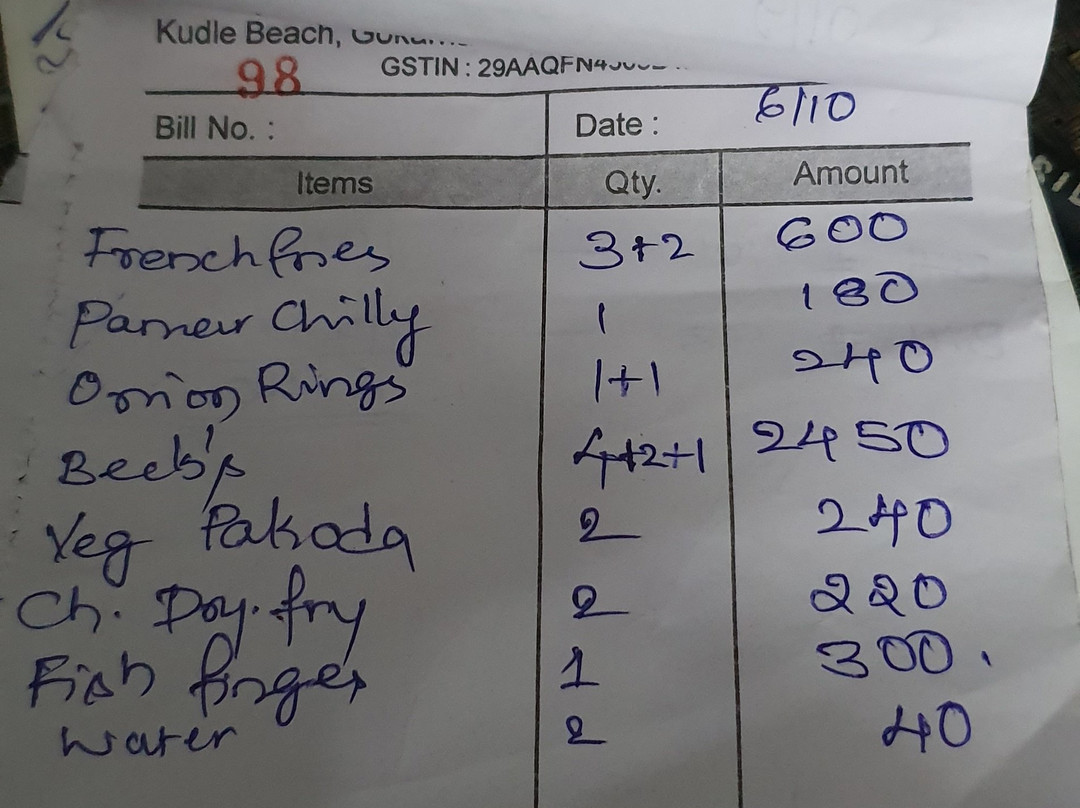 Kudle Beach,
98 GSTIN : 29AAQFN4
Bill No. : Date : 6/10
Items Qty. Amount
French fries 3+2 600
Panneer Chilly 1 180
Onion Rings 1+1 240
Beeb's 4+2+1 2450
Veg Pakoda 2 240
Ch. Dry. fry 2 220
Fish finger 1 300.
Water 2 40